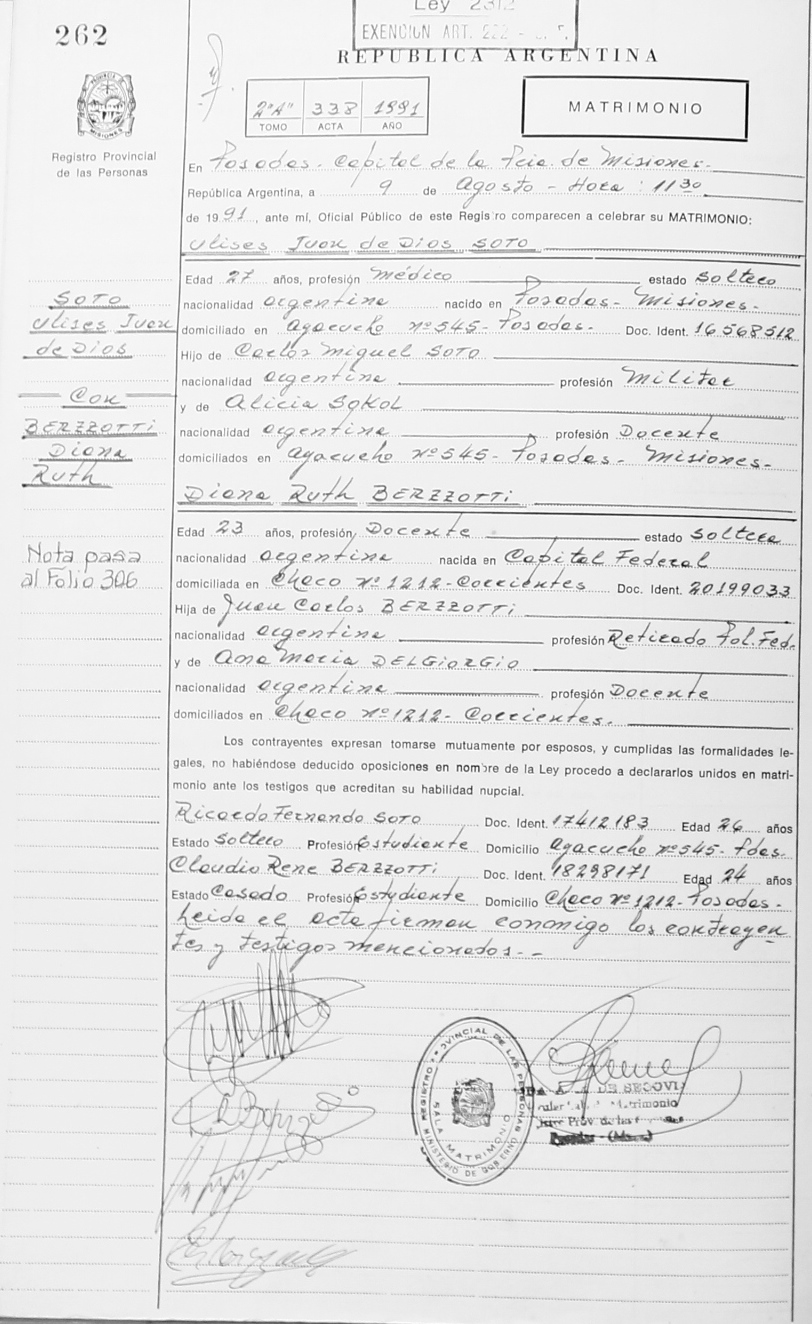 Ley 2312
EXENCION ART. 222 -
262
REPUBLICA ARGENTINA
2º"A" 338 1991
TOMO ACTA AÑO
MATRIMONIO
PROVINCIA DE MISIONES
Registro Provincial
de las Personas
En Posadas- Capital de la Pcia. de Misiones-
República Argentina, a 9 de Agosto - Hora: 11 30
de 1991, ante mí, Oficial Público de este Registro comparecen a celebrar su MATRIMONIO:
Ulises Juan de Dios SOTO
Edad 27 años, profesión Médico estado Soltero
nacionalidad argentina nacido en Posadas- Misiones-
domiciliado en Ayacucho nº 545- Posadas- Doc. Ident. 16568512
Hijo de Carlos Miguel SOTO
nacionalidad argentina profesión Militar
y de Alicia SOKOL
nacionalidad argentina profesión Docente
domiciliados en Ayacucho nº 545- Posadas- Misiones-
Diana Ruth BERZZOTTi
SOTO
Ulises Juan
de Dios
Con
BERZZOTTi
Diana
Ruth
Nota pasa
al Folio 306
Edad 23 años, profesión Docente estado Soltera
nacionalidad argentina nacida en Capital Federal
domiciliada en Chaco nº 1212-Corrientes Doc. Ident. 20199033
Hija de Juan Carlos BERZZOTTi
nacionalidad argentina profesión Retirado Pol. Fed.
y de Ana Maria DELGIORGIO
nacionalidad argentina profesión Docente
domiciliados en Chaco nº 1212- Corrientes.
Los contrayentes expresan tomarse mutuamente por esposos, y cumplidas las formalidades le-
gales, no habiéndose deducido oposiciones en nombre de la Ley procedo a declararlos unidos en matri-
monio ante los testigos que acreditan su habilidad nupcial.
Ricardo Fernando SOTO Doc. Ident. 17412183 Edad 26 años
Estado Soltero Profesión Estudiante Domicilio Ayacucho nº 545- Pdas.
Claudio Rene BERZZOTTi Doc. Ident. 18298171 Edad 24 años
Estado Casado Profesión Estudiante Domicilio Chaco nº 1212- Posadas-
Leida el acta firman conmigo los contrayen
tes y testigos mencionados.-
REGISTRO PROVINCIAL DE LAS PERSONAS
SALA MATRIMONIO
MINISTERIO DE GOBIERNO
DE SEGOVI
Matrimonio
Prov. de las
Posadas - (Mnes)